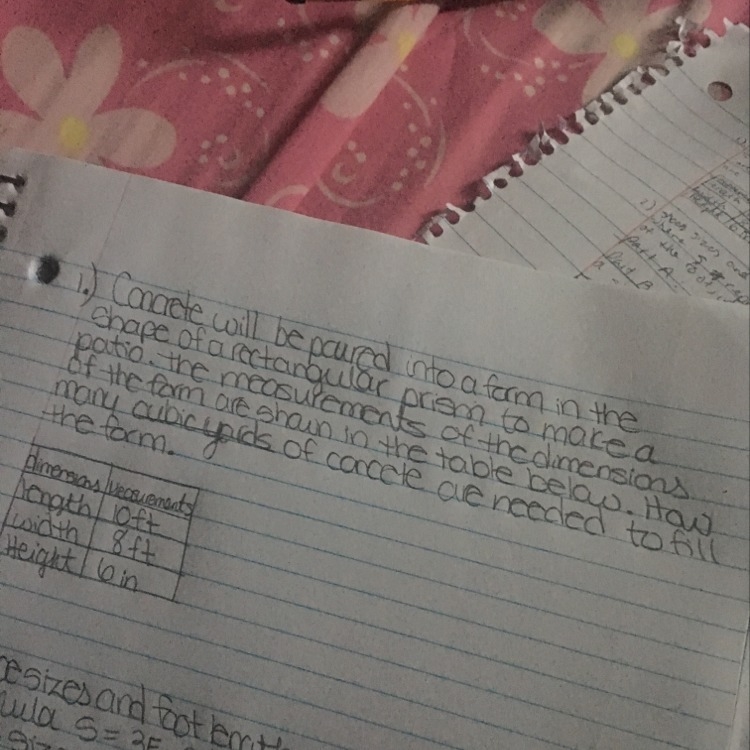 1.) Concrete will be poured into a form in the
shape of a rectangular prism to make a
patio. the measurements of the dimensions
of the form are shown in the table below. How
many cubic yards of concrete are needed to fill
the form.
dimensions
length 10ft
width 8ft
Height 6in
sizes and foot
S=3F
1)
Part A
Part B